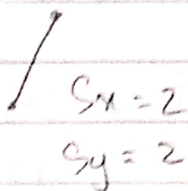 Sx = 2
Sy = 2